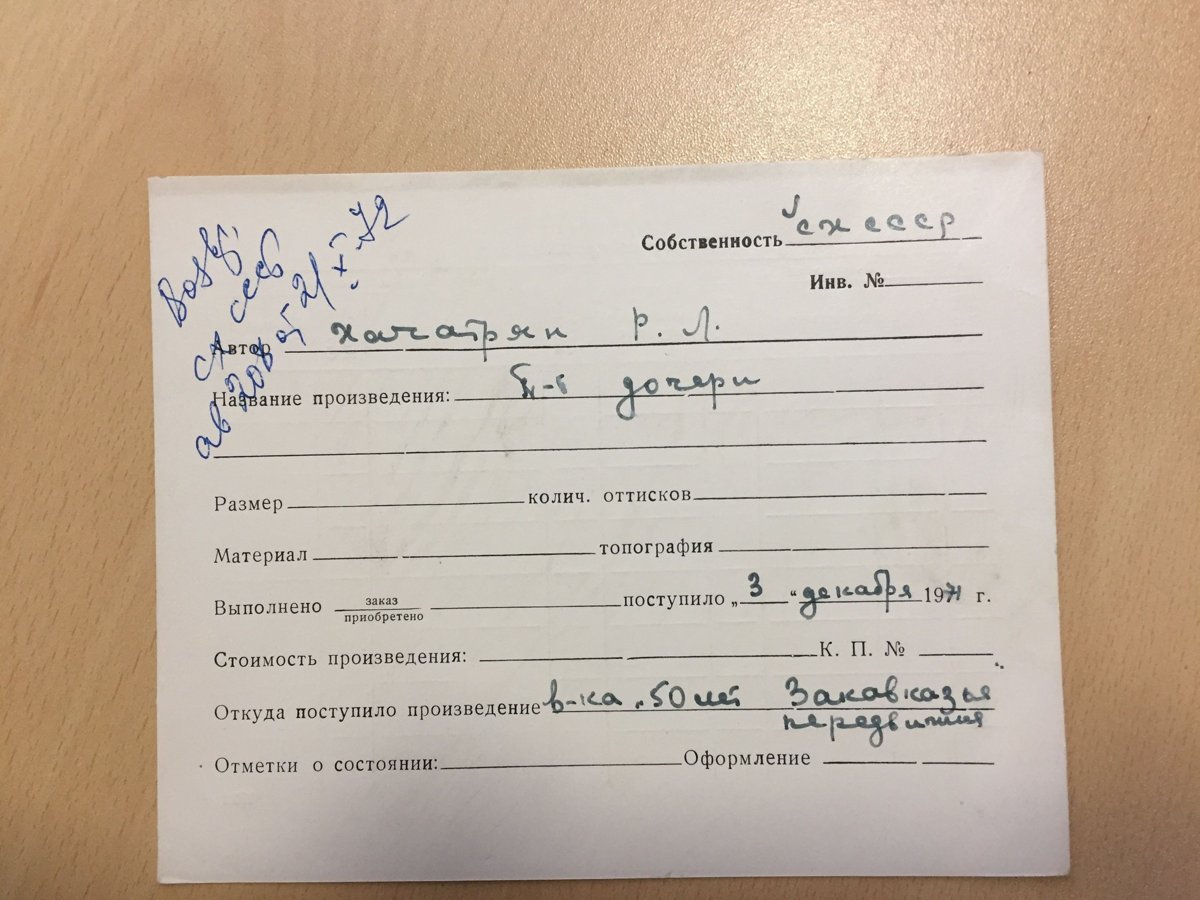 Собственность СХ СССР
Инв. №
Автор Хачатрян Р. Л.
Название произведения: П-т дочери
Размер колич. оттисков
Материал топография
Выполнено заказ приобретено поступило „3“ декабря 1971 г.
Стоимость произведения: К. П. №
Откуда поступило произведение в-ка „50 лет Закавказья
передвижная
Отметки о состоянии: Оформление
от 21/XI-72